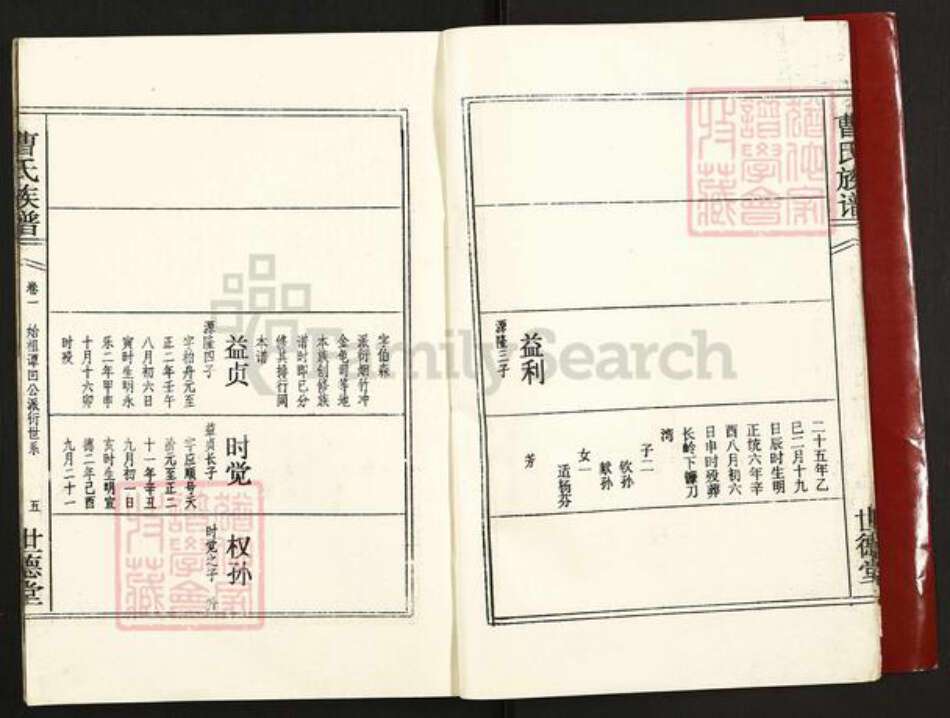 曹氏族谱
世德堂
二十五年乙
巳二月十九
日辰时生明
正统六年辛
酉八月初六
日申时殁葬
长岭下镰刀
湾
子二
钦孙
献孙
女一
适杨芬
芳
益利
源隆三子
字伯森
派衍烟竹冲
金龟司等地
本族创修族
谱时即已分
修其排行同
本谱
益贞
源隆四子
字柏舟元至
正二年壬午
八月初六日
寅时生明永
乐二年甲申
十月十六卯
时殁
时觉
益贞长子
字应顺号天
元至正二
十一年辛丑
九月初一日
亥时生明宣
德二年己酉
九月二十一
权孙
时觉之子
曹氏族谱
卷一
始祖谭回公派衍世系
五
世德堂
FamilySearch